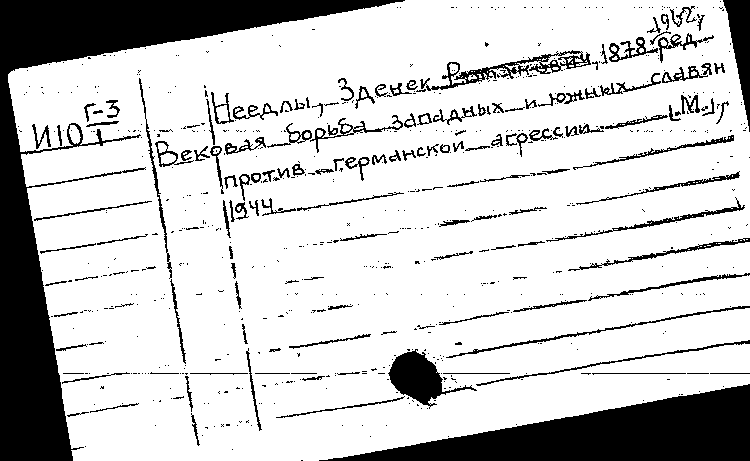 1962,
Г-3
Неедлы, Зденек 1878- ред.
И10 1
Вековая борьба западных и южных славян
против германской агрессии [М.],
1944.